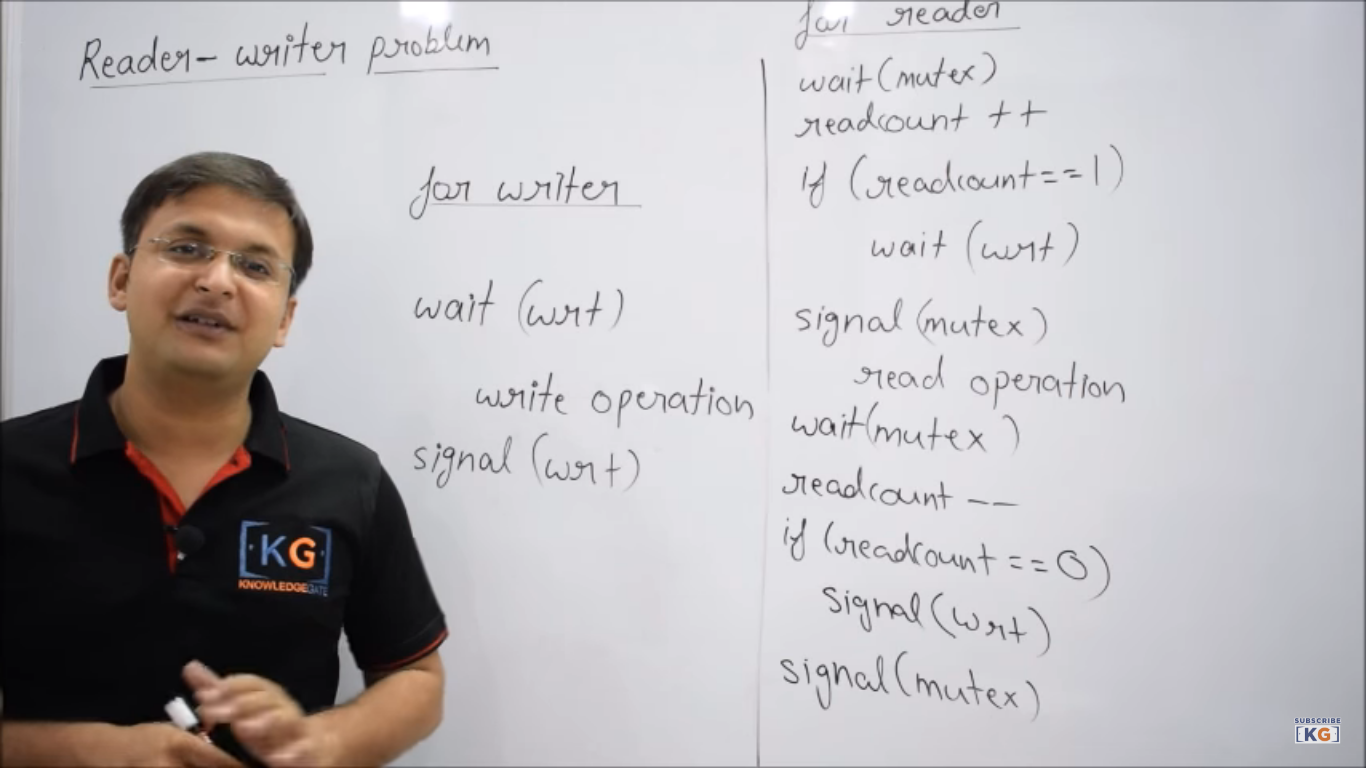 Reader-writer problem
for writer
wait (wrt)
write operation
signal (wrt)
for reader
wait(mutex)
readcount ++
if (readcount==1)
wait (wrt)
signal (mutex)
read operation
wait(mutex)
readcount --
if (readcount ==0)
signal(wrt)
signal(mutex)
KG
KNOWLEDGEGATE
SUBSCRIBE
[KG]